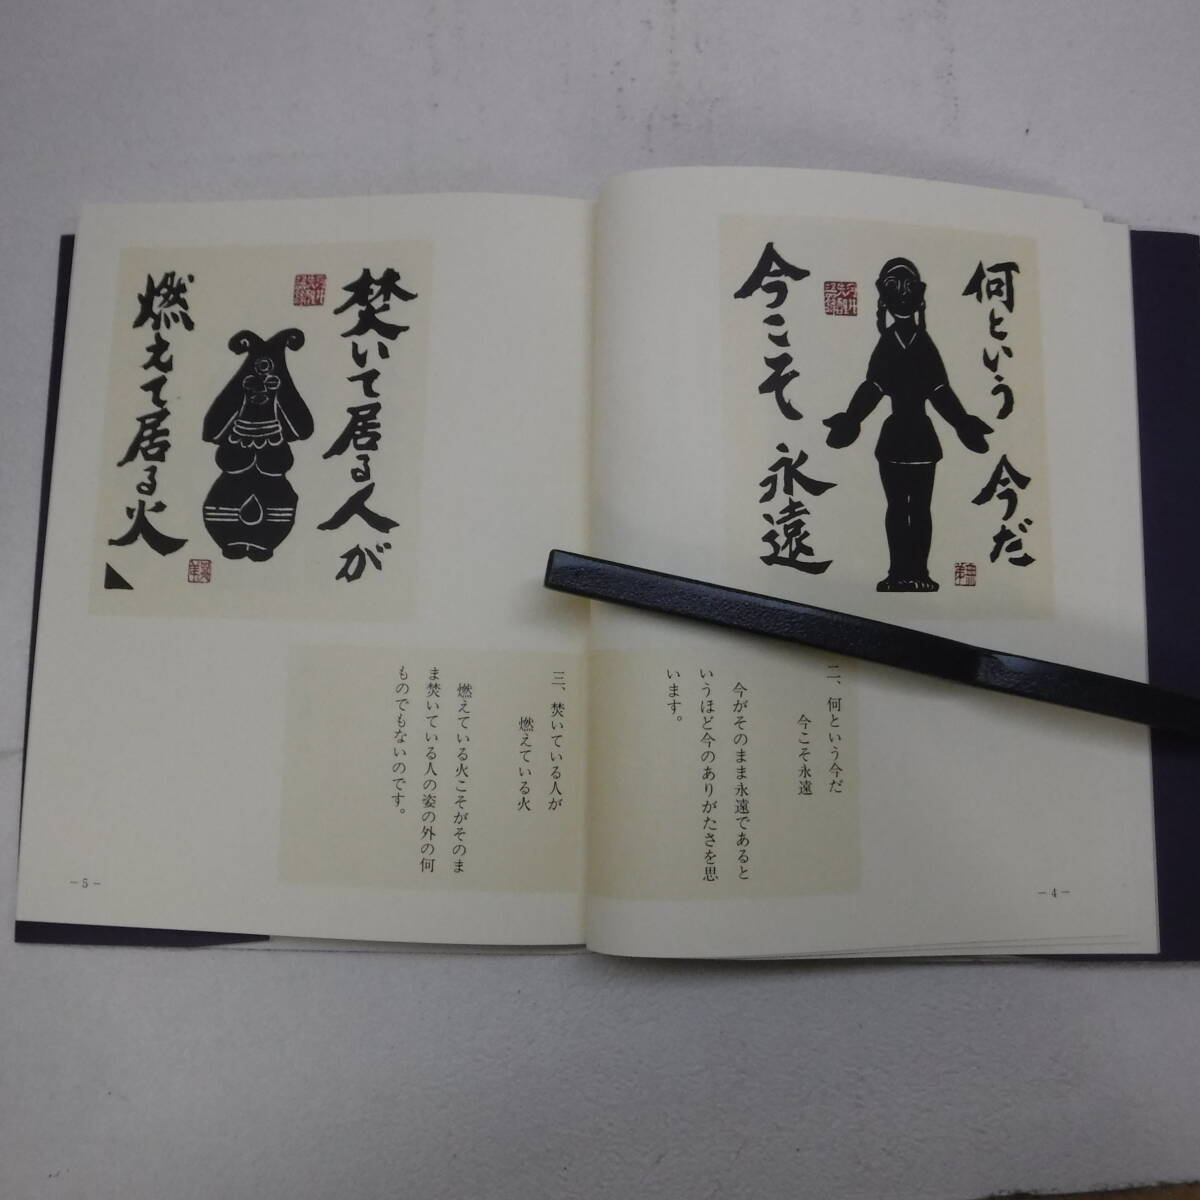 何という 今だ
今こそ 永遠
二、何という今だ
今こそ永遠
今がそのまま永遠であると
いうほど今のありがたさを思
います。
－4－
焚いて居る人が
燃えて居る火
三、焚いている人が
燃えている火
燃えている火こそがそのま
ま焚いている人の姿の外の何
ものでもないのです。
－5－